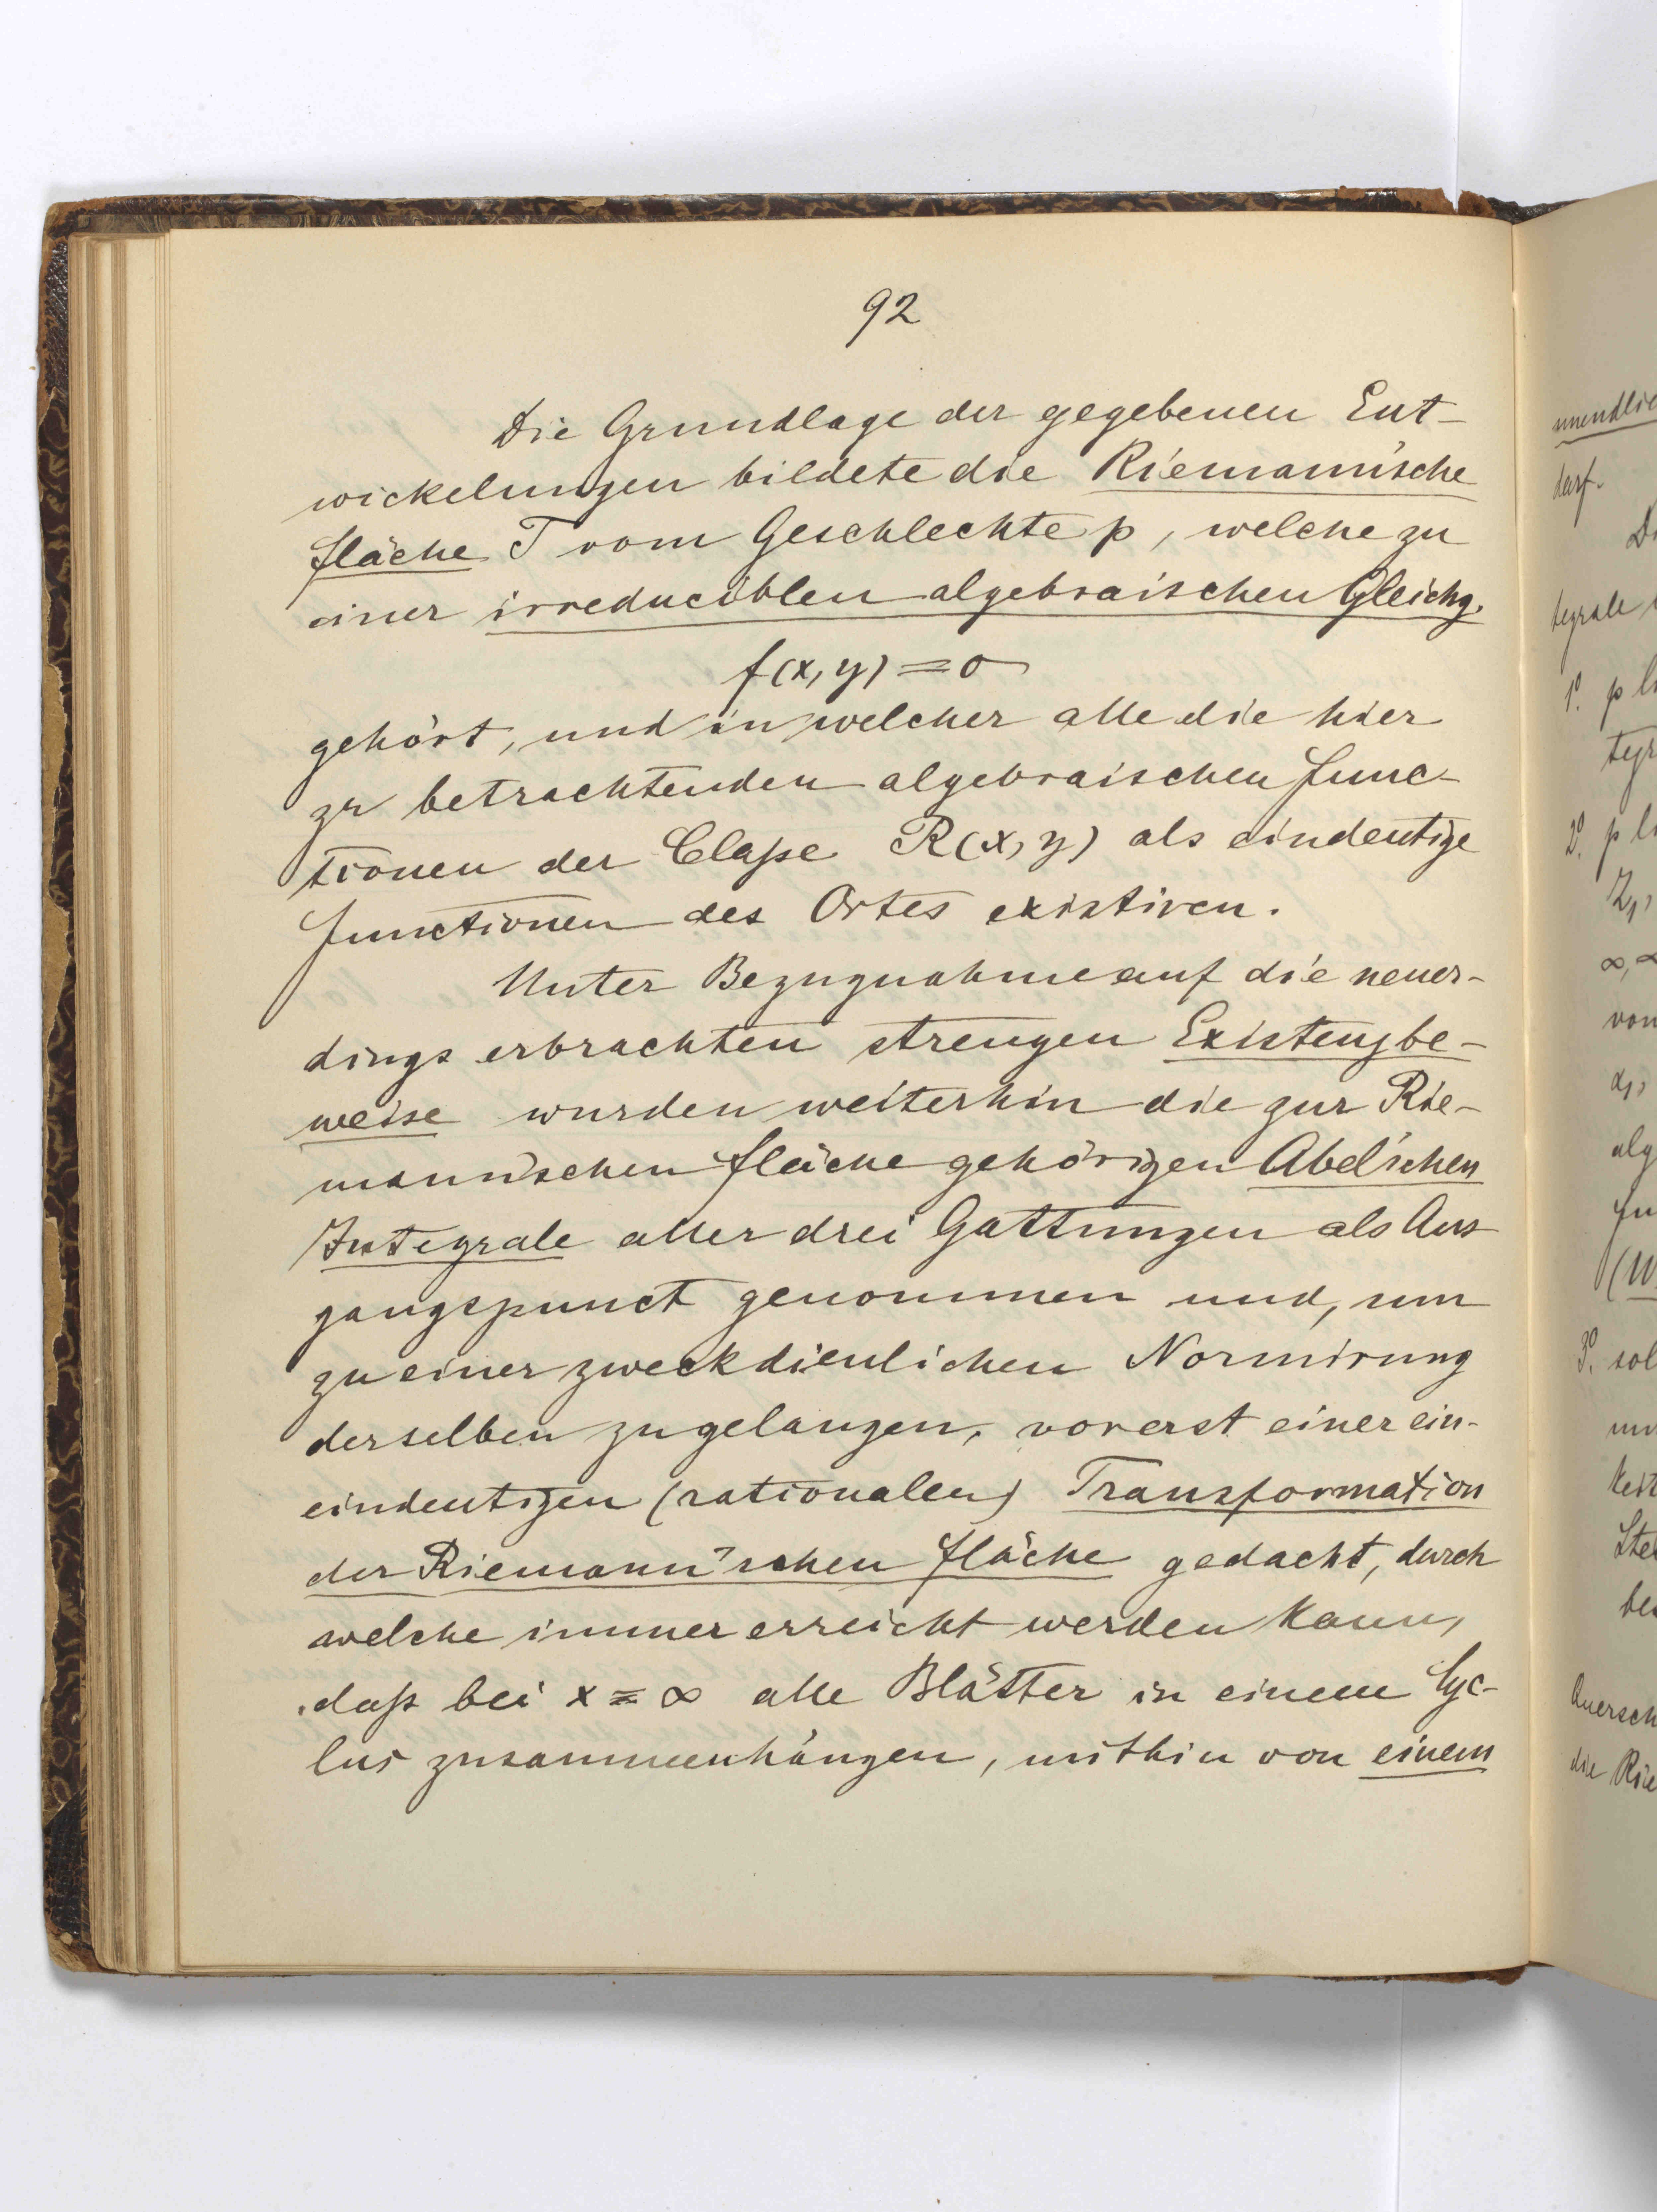 92
Die Grundlage der gegebenen Ent-
wickelungen bildete die Riemann'sche
Fläche T vom Geschlechte p, welche zu
einer irreduciblen algebraischen Gleichg.
f(x, y) = 0
gehört, und in welcher alle die hier
zu betrachtenden algebraischen Func-
tionen der Classe R(x, y) als eindeutige
Functionen des Ortes existiren.
Unter Bezugnahme auf die neuer-
dings erbrachten strengen Existenzbe-
weise wurden weiterhin die zur Rie-
mann'schen Fläche gehörigen Abel'schen
Integrale aller drei Gattungen als Aus
gangspunct genommen und, um
zu einer zweckdienlichen Normirung
derselben zu gelangen, vorerst einer ein-
eindeutigen (rationalen) Transformation
der Riemann'schen Fläche gedacht, durch
welche immer erreicht werden kann,
dass bei x = ∞ alle Blätter in einem Cyc-
lus zusammenhängen, mithin von einem
unendlic
darf.
D
tegrale
1º. p li
teg
2º. p li
Z₁,
∞, ∞
von
α₁,
alg
Fu
(W
3º. sol
un
keit
Ste
be
Quersch
die Rie